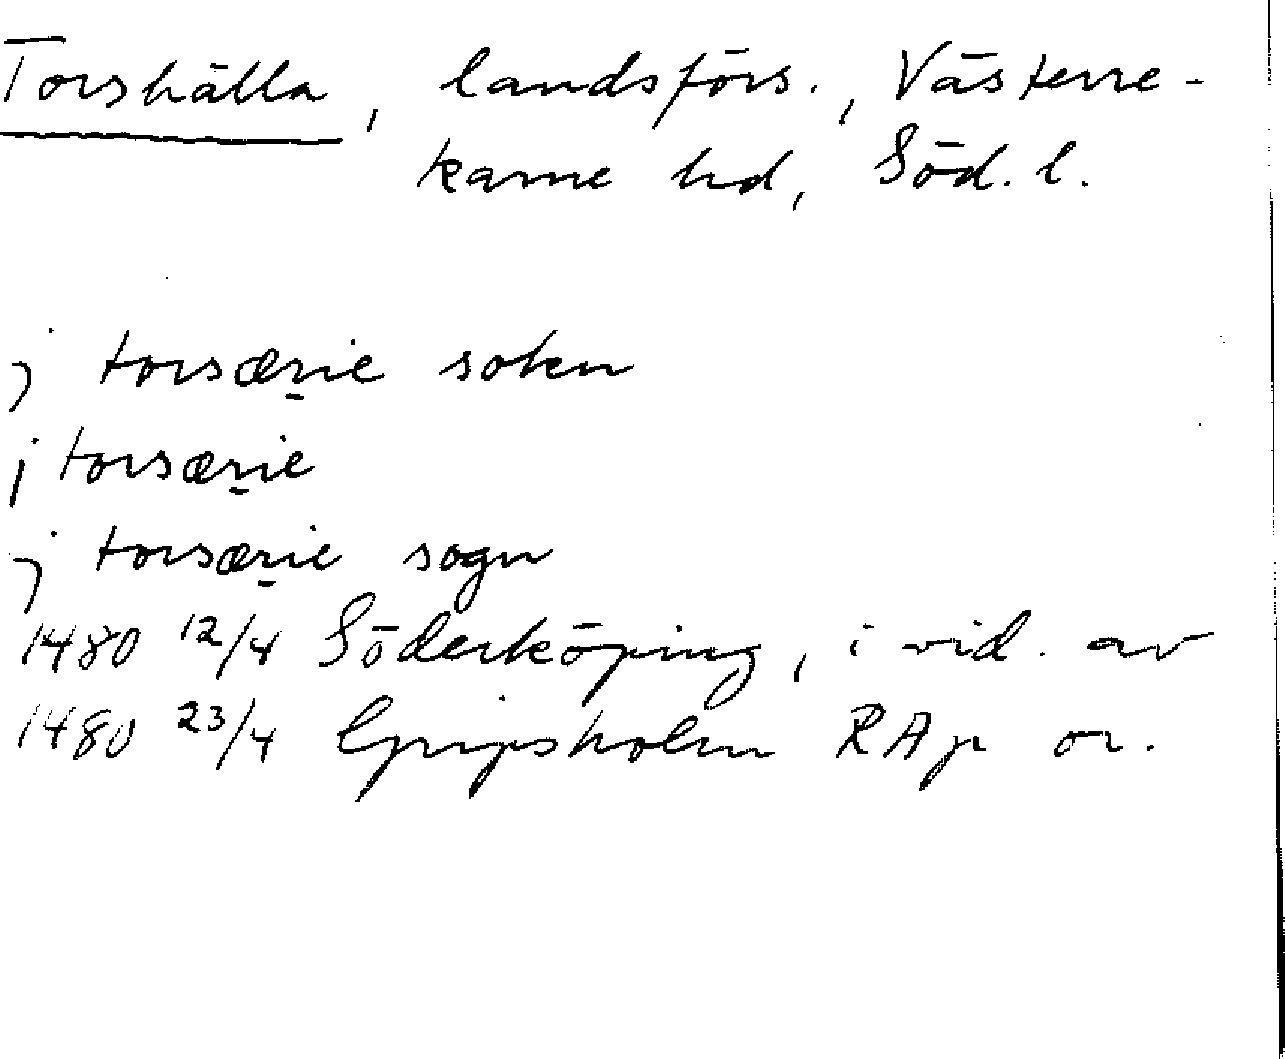 Torshälla, landsförs., Västerre-
karne hd, Söd. l.
j torsærie sokn
j torsærie
j torsærie sogn
1480 12/4 Söderköping, i vid. av
1480 23/4 Gripsholm RAp or.